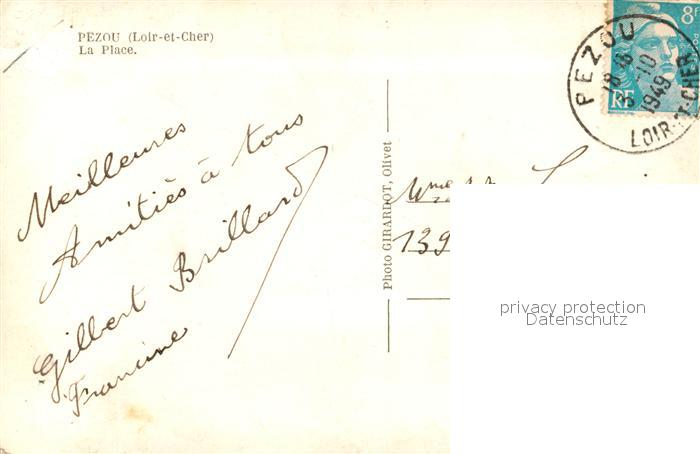 PEZOU (Loir-et-Cher)
La Place.
8f
RF
PEZOU
18-8
-10
1949
LOIR-ET-CHER
Meilleures
Amitiés à tous
Gilbert Brillard
Francine
Photo GIRARDOT, Olivet
Mme
139
privacy protection
Datenschutz